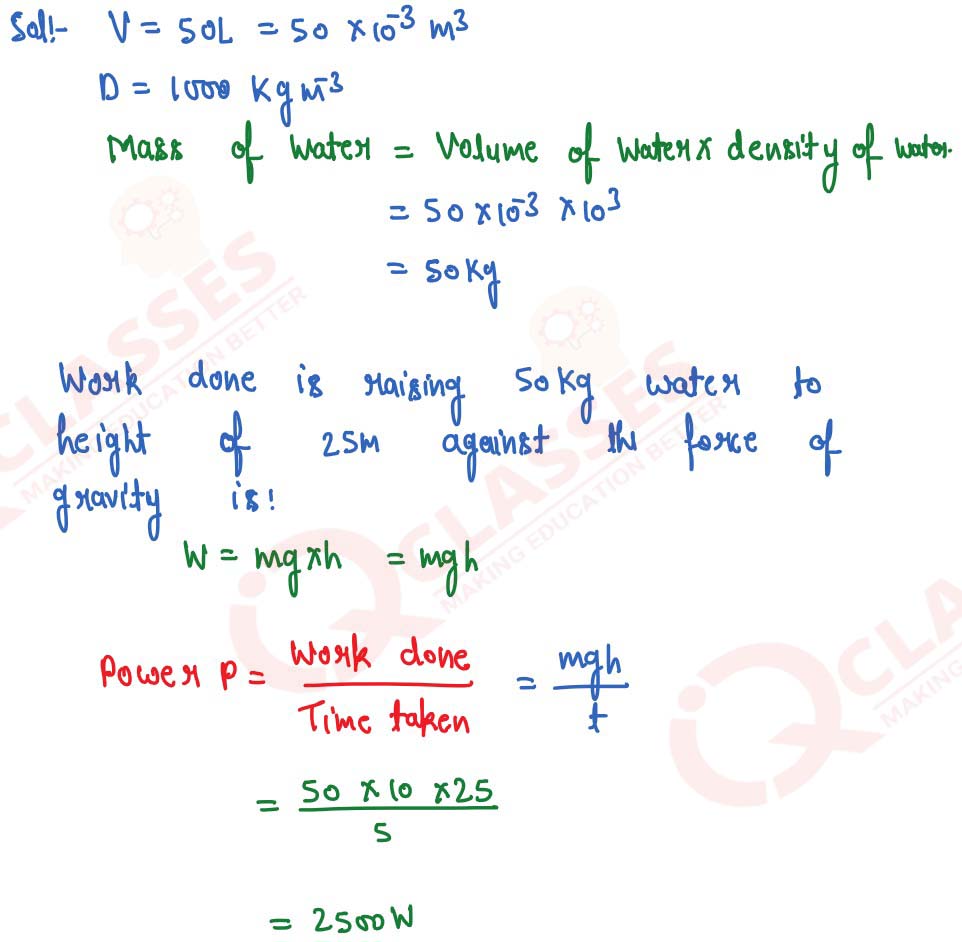 Sol!- V = 50L = 50 × 10⁻³ m³
D = 1000 Kg m⁻³
Mass of water = Volume of water × density of water.
= 50 × 10⁻³ × 10³
= 50Kg
Work done is raising 50Kg water to
height of 25m against th force of
gravity is!
W = mg × h = mgh
Power P = Work done / Time taken = mgh / t
= 50 × 10 × 25 / 5
= 2500 W
CLASSES
MAKING EDUCATION BETTER
IQ CLASSES
MAKING EDUCATION BETTER
IQ CLA
MAKING